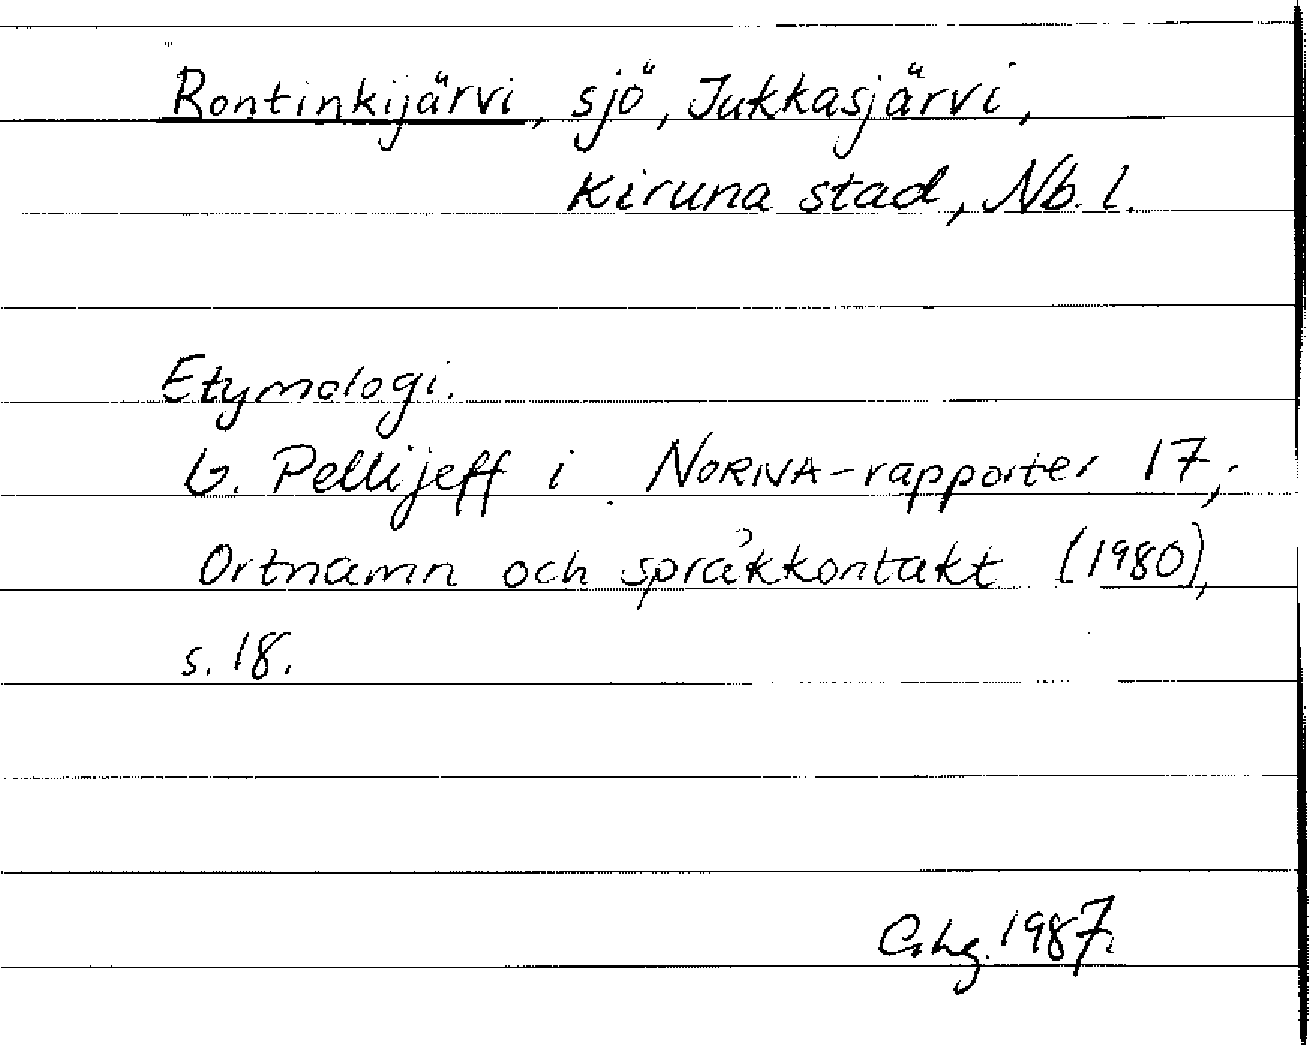 Rontinkijärvi, sjö, Jukkasjärvi,
Kiruna stad, Nb. l.
Etymologi.
G. Pellijeff i NORNA-rapporter 17,
Ortnamn och språkkontakt (1980),
s. 18.
1987.